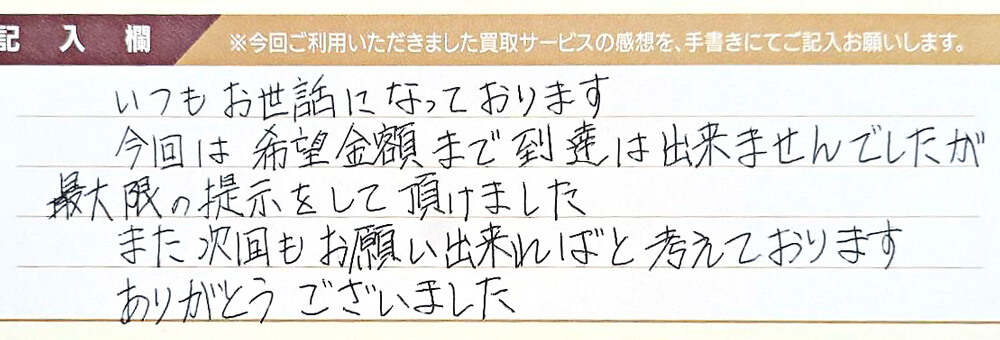 記入欄
※今回ご利用いただきました買取サービスの感想を、手書きにてご記入お願いします。
いつもお世話になっております
今回は希望金額まで到達は出来ませんでしたが
最大限の提示をして頂けました
また次回もお願い出来ればと考えております
ありがとうございました